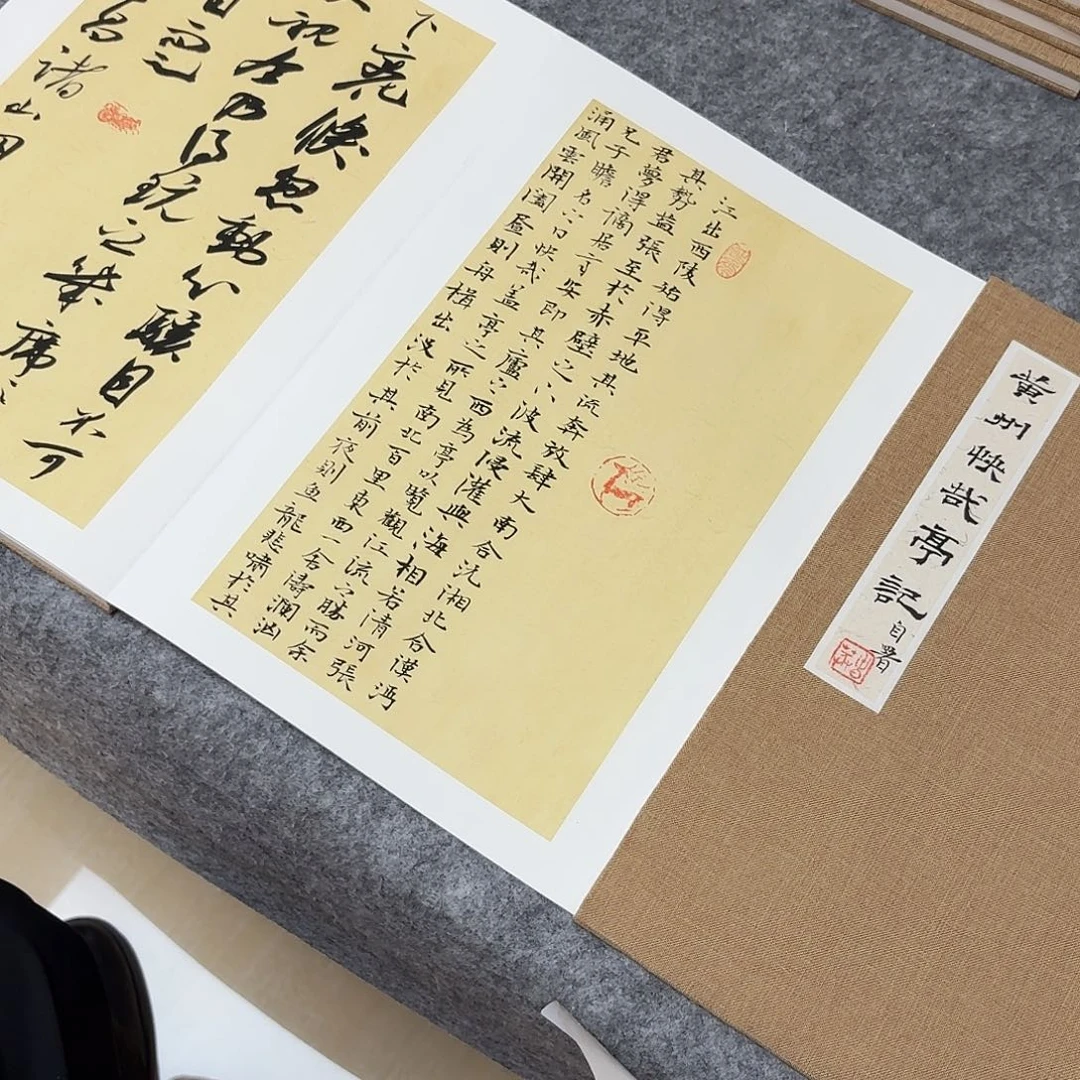 黄州快哉亭記
自署
江出西陵始得平地其流奔放肆大南合沅湘北合漢沔
其勢益張至於赤壁之下波流浸灌與海相若清河張
君夢得謫居齊安即其廬之西為亭以覽觀江流之勝而余
兄子瞻名之曰快哉蓋亭之所見南北百里東西一舍濤瀾洶
涌風雲開闔晝則舟楫出沒於其前夜則魚龍悲嘯於其
下變倏忽動心駭目不可
視今乃得玩之幾席
目而足
昌諸山岡